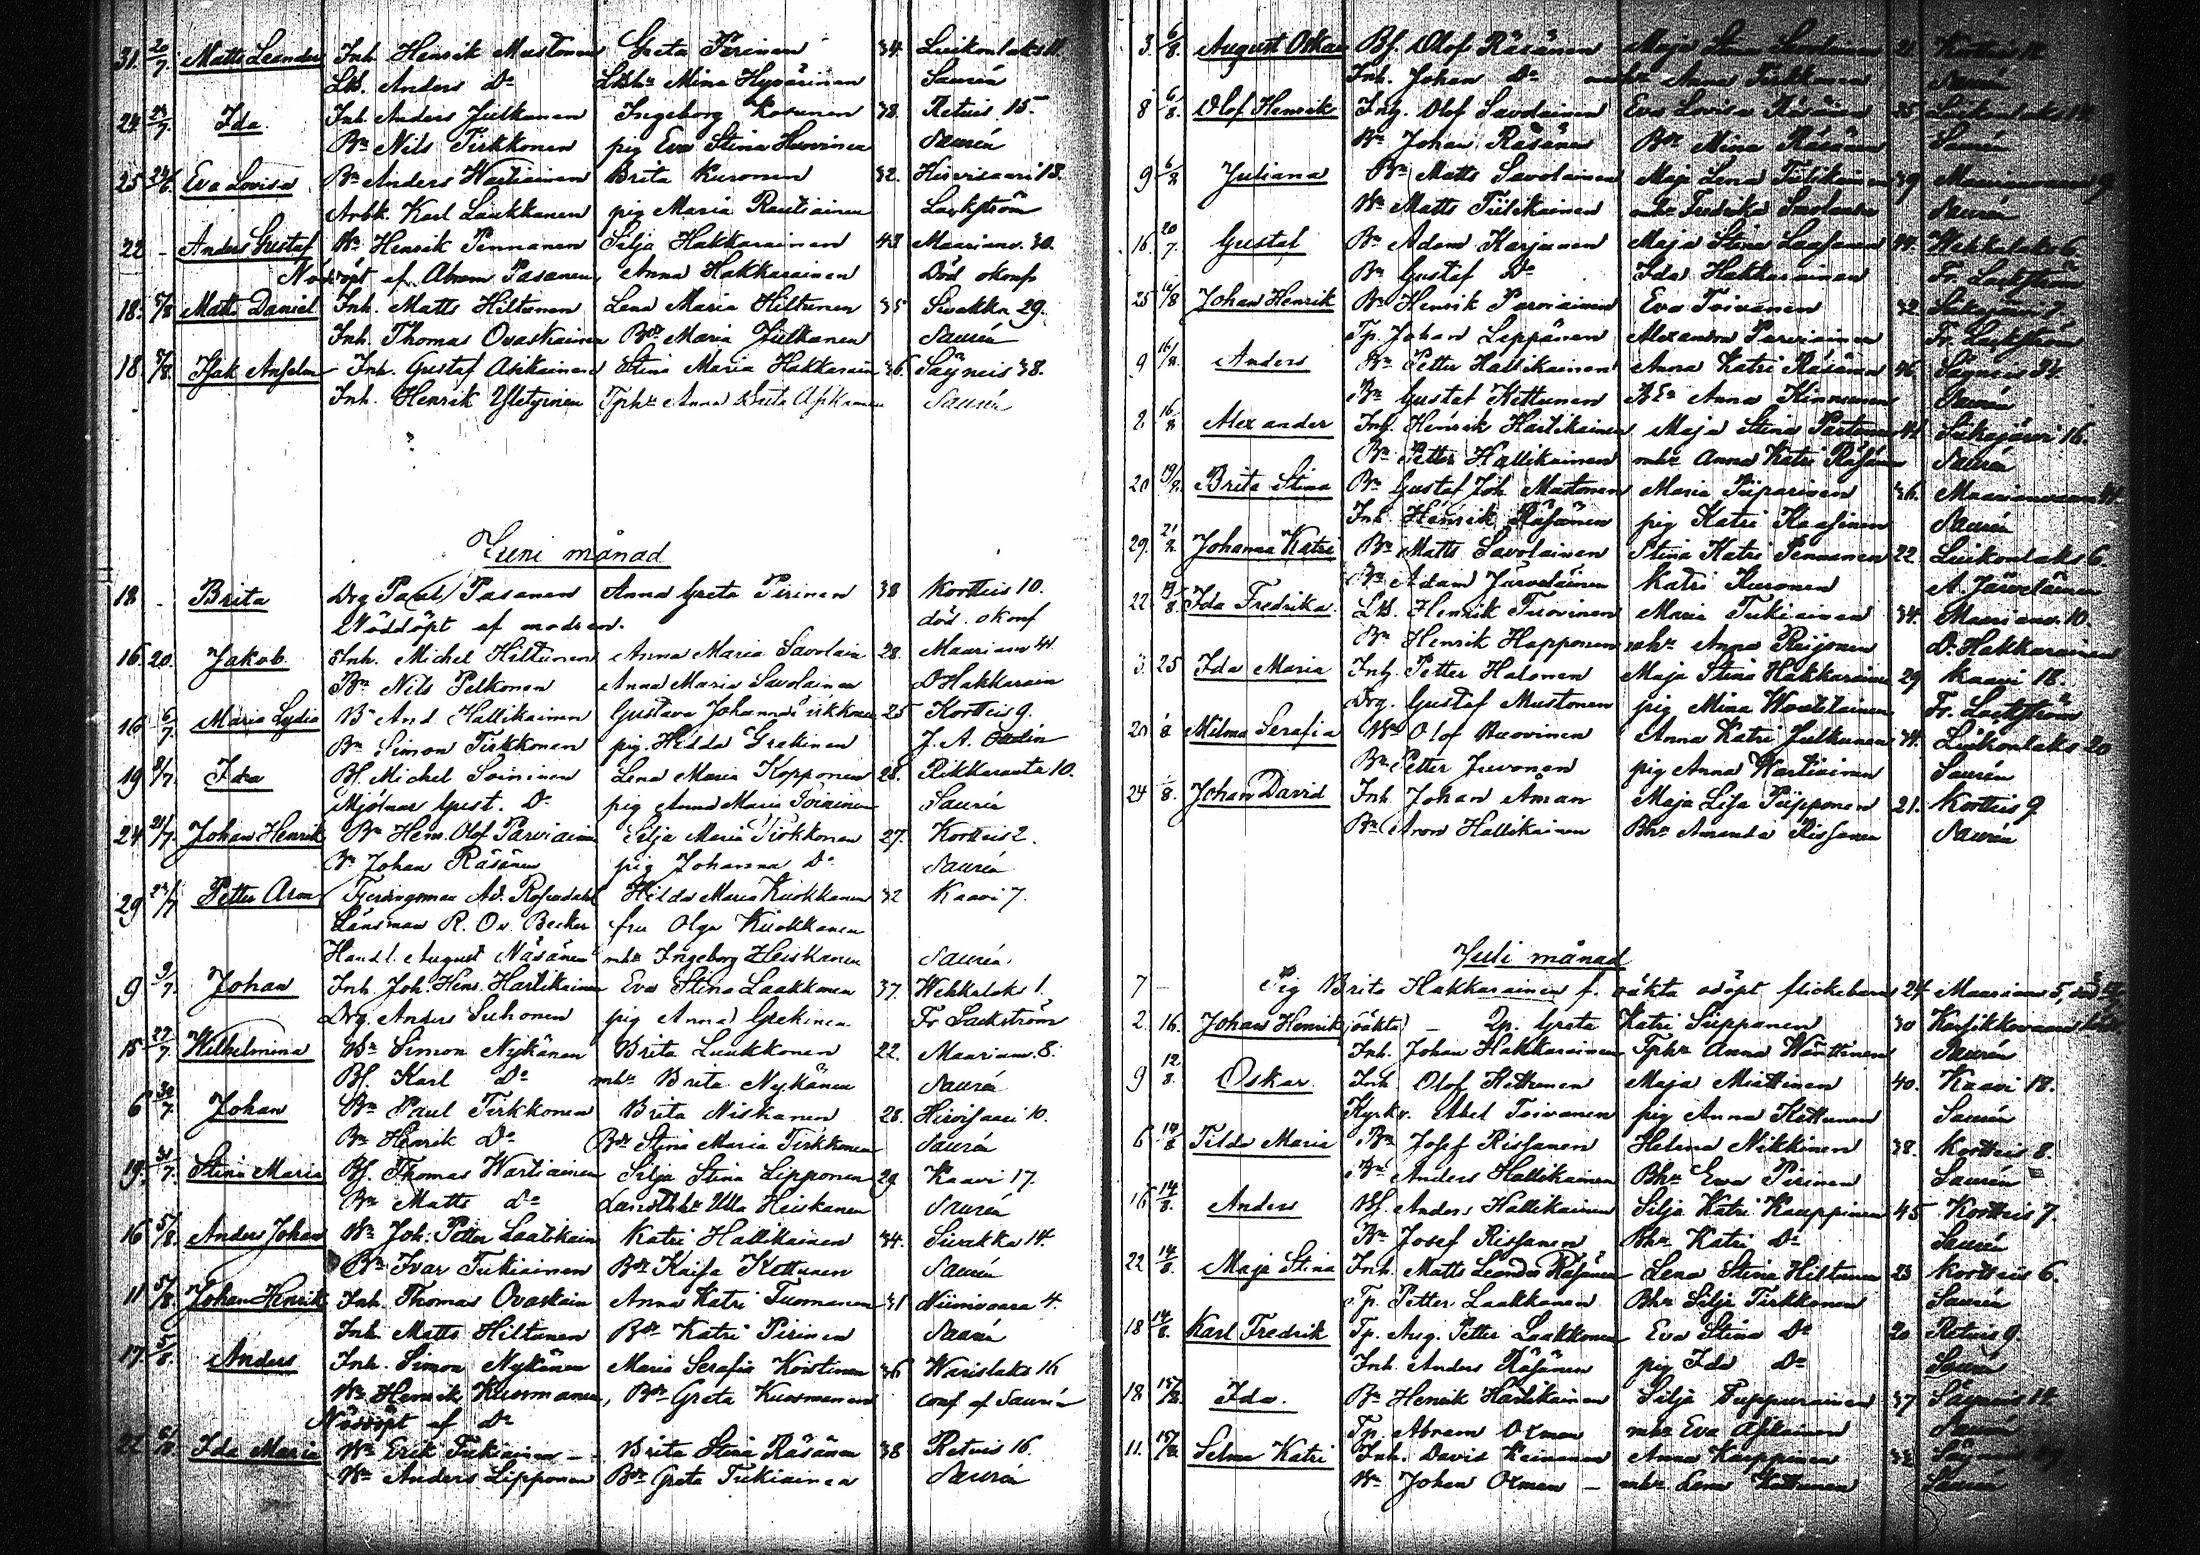 31. 20/7. Matts Leander Inh. Henrik Mustonen Greta Pirinen 34. Luikonlaks 11.
Lts. Anders Do Ltshr Mina Hyvärinen Saurén
24 24/7. Ida Inh Anders Julkunen Ingeborg Kosunen 38. Retuis 15
Bn Nils Tirkkonen pig Eva Stina Huovinen Saurén
25 24/6. Eva Lovisa Bn Anders Wartiainen Brita Kuronen 32. Hirvisaari 18.
Arbk. Karl Laukkanen pig Maria Rautiainen Lackström
22 - Anders Gustaf Bn Henrik Pennanen Silja Hakkarainen 43 Maarianv. 30.
Nöddöpt af Abram Pasanen, Anna Hakkarainen Död okonf
18. 5/8 Matts Daniel Inh. Matts Hiltunen Lena Maria Hiltunen 35 Sivakka 29.
Inh. Thomas Ovaskainen Bdr Maria Julkunen Saurén
18. 5/8. Isak Anselm Inh. Gustaf Asikainen Stina Maria Hakkarain 36. Säyneis 38.
Inh. Henrik Tphr Anna Brita Saurén
Juni månad
18 - Brita Drg Paul Pasanen Anna Greta Pirinen 38 Kortteis 10.
Nöddöpt af modren. död. okonf
16. 20. Jakob Inh. Michel Hiltunen Anna Maria Savolain 28. Maarianv 41.
Bn Nils Pelkonen Anna Maria Savolainen D Hakkarain
16 6/7 Maria Lydia Bn And. Hallikainen Gustava Johanna Tirkkonen 25 Kortteis 9.
Bn Simon Tirkkonen pig. Hedda Grekinen J. A.
19 8/7. Ida Bf. Michel Soininen Lena Maria Kopponen 28. Rikkaranta 10.
Mjölnar Gust. Do pig Anna Maria Soininen Saurén
24 21/7. Johan Henrik Bn Henr. Olof Parviainen Silja Maria Tirkkonen 27. Kortteis 2.
Bn Johan Räsänen pig Johanna Do Saurén
29 24/7 Petter Aron Fjerdingsman Ad. Rosendahl Hilda Maria Kuokkanen 32 Kaavi 7.
Länsman R. Becker fru Olga Kuokkanen
Handl. August Räsänen mhr Ingeborg Heiskanen Saurén.
9 9/7. Johan Inh. Joh. Henr. Hartikainen Eva Stina Laakkonen 37. Wehkalaks 1.
Drg. Anders Suhonen pig Anna Grekinen Fr Lackström
15 27/7. Wilhelmina Bn Simon Nykänen Brita Luukkonen 22. Maarianv. 8.
Bf. Karl Do mhr Brita Nykänen Saurén
6 30/7. Johan Bn Paul Tirkkonen Brita Niskanen 28. Hirvisaari 10.
Bn Henrik Do Bdr Stina Maria Tirkkonen Saurén
19. 31/7. Stina Maria Bf. Thomas Wartiainen Silja Stina Lipponen 29. Kaavi 17.
Bn Matts Do Landthlr Ulla Heiskanen Saurén
16 5/8. Anders Johan Bn Joh: Petter Laatikain Katri Hallikainen 34. Sivakka 14.
Bn Ivar Tukiainen Bdr Kaisa Kettunen Saurén
11 5/8. Johan Henrik Inh. Thomas Ovaskain Anna Katri Tuomanen 31 Niinivaara 4.
Inh. Matts Hiltunen Bdr Katri Pirinen Saurén
17 5/8. Anders Inh. Simon Nykänen Maria Serafia Kontinen 36 Warislaks 16
Bn Henrik Kuosmanen, Bdr Greta Kuosmanen conf af Saurén
Nöddöpt af Do
22 6/8 Ida Maria Bn Erik Tukiainen Brita Stina Räsänen 38 Retuis 16.
Bn Anders Lipponen Bdr Greta Tukiainen Saurén
3. 6/8. August Oskar Bf. Olof Räsänen Maja Lena
Inh. Johan Do mhr Anna Tirkkonen Saurén
8 6/8. Olof Henrik Inh. Olof Savolainen Eva Lovisa Räsänen 35 Luikonlaks
Bn Johan Räsänen Bdr Mina Räsänen Saurén
9 6/8 Juliana Bn Matts Savolainen Maja Lena Tiilikainen 39 Maarianvaara 9.
Bn Matts Tiilikainen mhr Fredrika Savolainen Saurén
16. 20/7. Gustaf Bn Adam Karjunen Maja Stina Laasonen 44. Wehkalaks 6.
Bn Gustaf Do Ida Hakkarainen Fr. Lackström
25 16/8 Johan Henrik Bn Henrik Parviainen Eva Toivanen 32
Tp. Johan Leppänen Alexandra Parviainen Fr. Lackström
9 16/8. Anders Bn Petter Hallikainen Anna Katri Räsänen 46 Säyneis 34.
Bn Gustaf Kettunen Anna Kinnunen Saurén
2. 16/8 Alexander Inh. Henrik Hartikainen Maja Stina 41 Siikajärvi 16.
Bn Petter Hallikainen mhr Anna Katri Räsänen Saurén
20 19/8. Brita Stina Bn Gustaf Joh. Mustonen Maria Piiparinen 36. Maarianvaara 41.
Inh Henrik Räsänen pig Katri Kaasinen Saurén
29. 21/8. Johanna Katri Bn Matts Savolainen Stina Katri Pennanen 22. Luikonlaks 6.
Bn Adam Järveläinen Katri Kuronen A. Järveläinen
22 19/8. Ida Fredrika Lts. Henrik Turovinen Maria Tukiainen 34. Maarianv. 10.
Bn Henrik Happonen mhr Anna Reijonen D. Hakkarainen
3. 25 Ida Maria Inh. Petter Halonen Maja Stina Hakkarainen 29 Kaavi 18.
Drg. Gustaf Mustonen pig Mina Fr. Lackström
20 8 Milma Serafia Bn Olof Ruovinen Anna Katri Julkunen 34. Luikonlaks 20
Bn Petter Juvonen pig Anna Wartiainen Saurén
24 8. Johan David Inh. Johan Åman Maja Lisa Piipponen 21. Kortteis 9
Bn Aron Hallikainen Bhr Amanda Rissanen Saurén
Juli månad
7 - Pig Brita Hakkarainen f. oäkta odöpt flickebarn 24 Maarianv 5,
2. 16. Johan Henrik (oäkta) - Qp. Greta Katri Siippanen 30
Inh. Johan Hakkarainen Tphr Anna Wänttinen Saurén
9 12/8. Oskar Inh Olof Kettunen Maja Miettinen 40. Kaavi 18.
Kyrkv. Abel Toivanen pig Anna Kettunen Saurén
6 14/8 Tilda Maria Bn Josef Rissanen Helena Nikkinen 38. Kortteis 8.
Bn Anders Hallikainen Bhr Eva Pirinen Saurén
16 14/8. Anders Bf. Anders Hallikainen Silja Katri Kauppinen 45 Kortteis 7.
Bn Josef Rissanen Bhr Katri Do Saurén
22 14/8. Maja Stina Inh. Matts Leander Räsänen Lena Stina Hiltunen 23 Kortteis 6.
Tp. Petter Laakkonen Bhr Silja Tirkkonen Saurén
18 14/8. Karl Fredrik Tp. Aug. Petter Laakkonen Eva Stina Do 20 Retuis 9.
Inh. Anders Räsänen pig Ida Do Saurén
18 15/8. Ida. Bn Henrik Hartikainen Silja Tuppurainen 37 Säyneis 14.
Tp. Abram Oxman mhr Eva Saurén
11. 15/8. Selma Katri Inh. David Kainanen Anna Kauppinen 32
Bn Johan Oxman - mhr Lena Kettunen Saurén